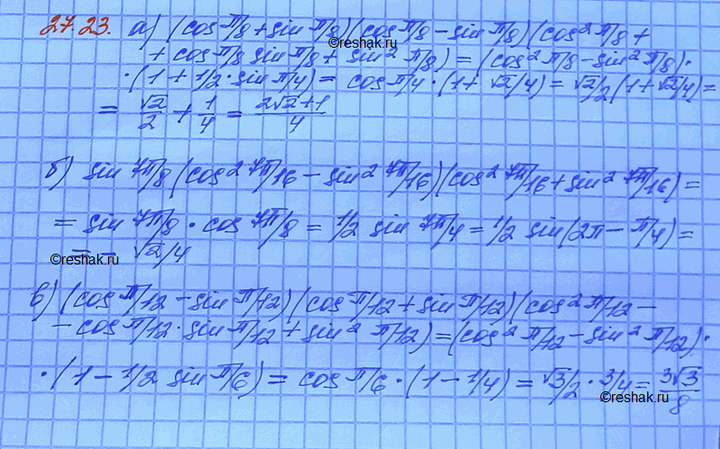 27.23. а) (cos π/8 + sin π/8)(cos π/8 - sin π/8)(cos² π/8 +
©reshak.ru
+ cos π/8 sin π/8 + sin² π/8) = (cos² π/8 - sin² π/8)·
·(1 + 1/2 · sin π/4) = cos π/4 · (1 + √2/4) = √2/2 (1 + √2/4) =
= √2/2 + 1/4 = (2√2+1)/4
б) sin 7π/8 (cos² 7π/16 - sin² 7π/16)(cos² 7π/16 + sin² 7π/16) =
= sin 7π/8 · cos 7π/8 = 1/2 sin 7π/4 = 1/2 sin(2π - π/4) =
= - √2/4
©reshak.ru
в) (cos π/12 - sin π/12)(cos π/12 + sin π/12)(cos² π/12 -
- cos π/12 · sin π/12 + sin² π/12) = (cos² π/12 - sin² π/12)·
·(1 - 1/2 sin π/6) = cos π/6 · (1 - 1/4) = √3/2 · 3/4 = 3√3/8
©reshak.ru